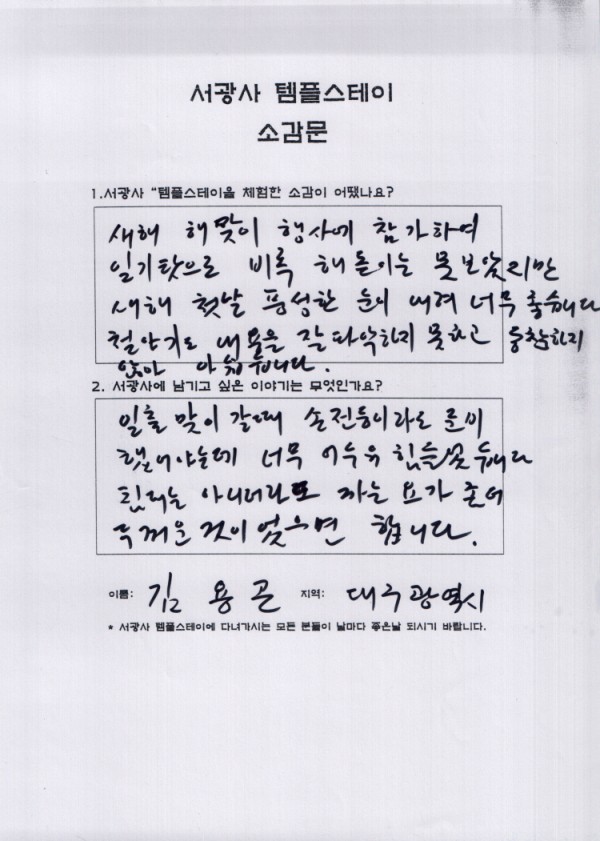 서광사 템플스테이
소감문
1.서광사 "템플스테이를 체험한 소감이 어땠나요?
새해 해맞이 행사에 참가하여
일기탓으로 비록 해돋이는 못보았지만
새해 첫날 풍성한 눈이 내려 너무 좋습니다
내용을 잘 파악하지 못하고 동참하지
않아
2. 서광사에 남기고 싶은 이야기는 무엇인가요?
일출 맞이 갈때 손전등이라도 준비
했어야는데 너무 어두워
아니더라도 자는 요가 좀더
두꺼운 것이었으면 합니다.
이름: 김용곤 지역: 대구광역시
* 서광사 템플스테이에 다녀가시는 모든 분들이 날마다 좋은날 되시기 바랍니다.